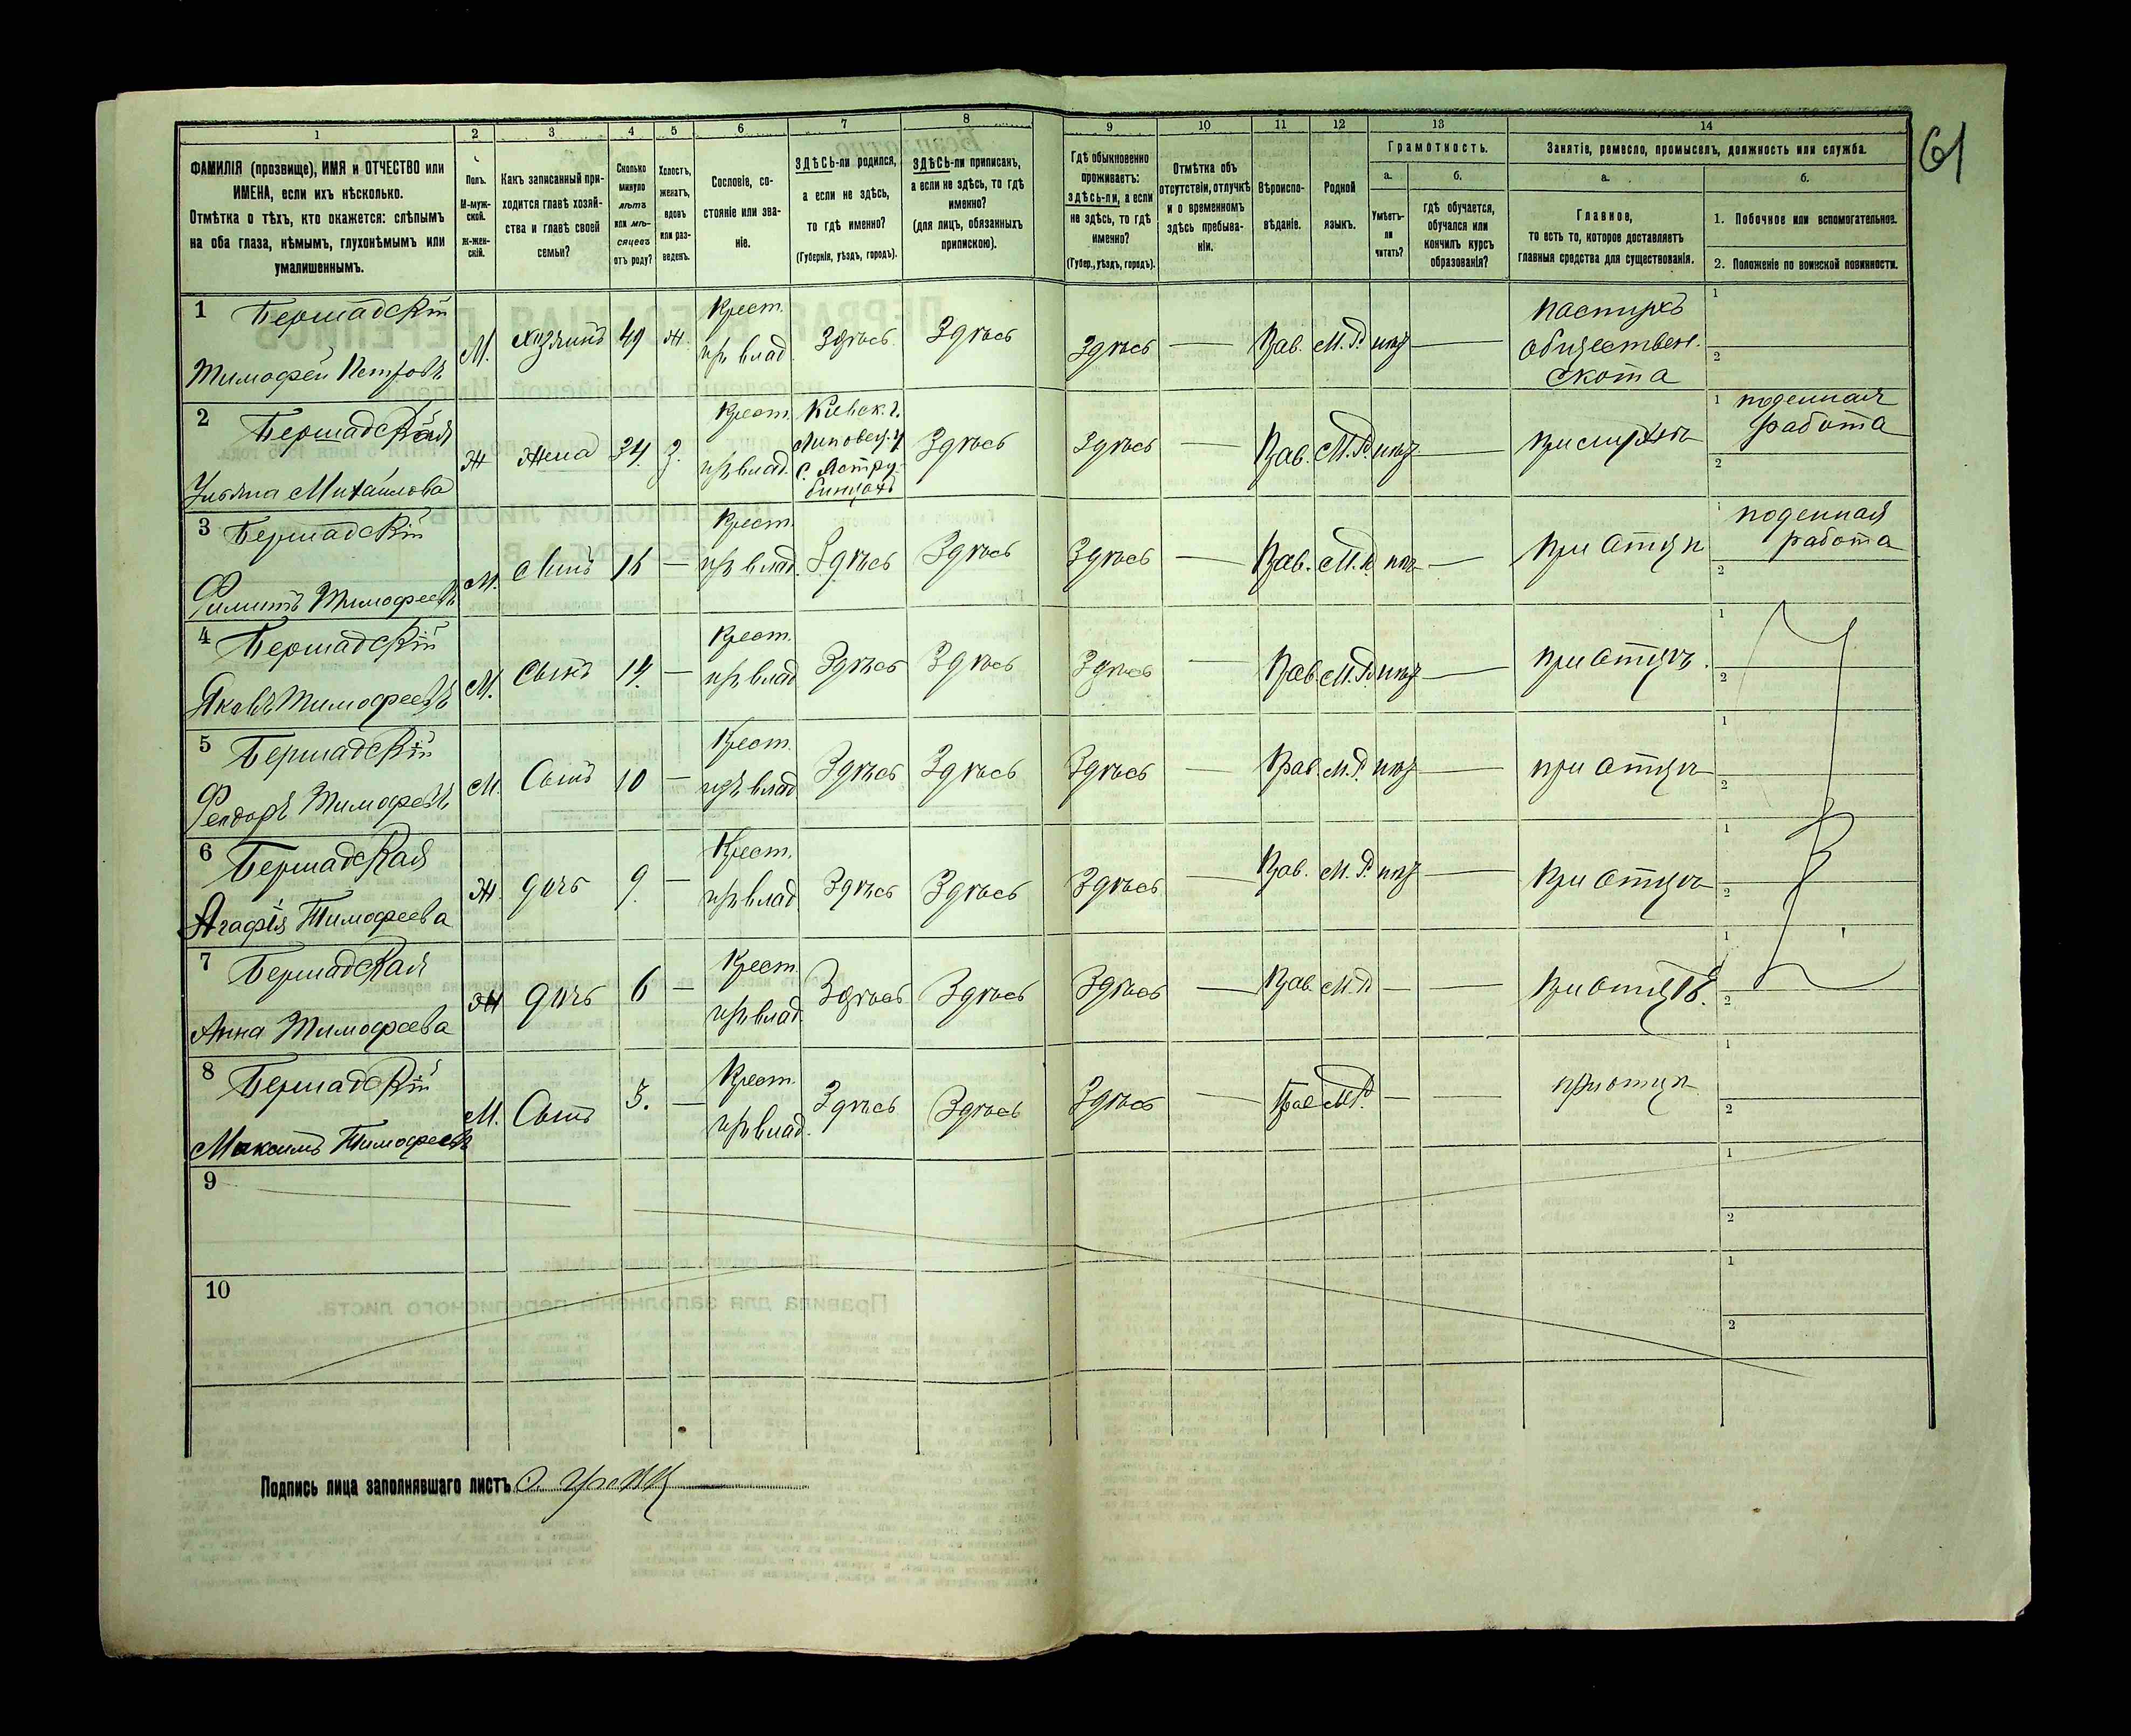 61
1 2 3 4 5 6 7 8 9 10 11 12 13 14
ФАМИЛІЯ (прозвище), ИМЯ и ОТЧЕСТВО или ИМЕНА, если ихъ нѣсколько.
Отмѣтка о тѣхъ, кто окажется: слѣпымъ на оба глаза, нѣмымъ, глухонѣмымъ или умалишеннымъ.
Полъ.
М-мужской.
Ж-женскій.
Какъ записанный приходится главѣ хозяйства и главѣ своей семьи?
Сколько минуло лѣтъ или мѣсяцевъ отъ роду?
Холостъ, женатъ, вдовъ или разведенъ.
Сословіе, состояніе или званіе.
ЗДѢСЬ-ли родился, а если не здѣсь, то гдѣ именно?
(Губернія, уѣздъ, городъ).
ЗДѢСЬ-ли приписанъ, а если не здѣсь, то гдѣ именно?
(для лицъ, обязанныхъ припискою).
Гдѣ обыкновенно проживаетъ: здѣсь-ли, а если не здѣсь, то гдѣ именно?
(Губер., уѣздъ, городъ).
Отмѣтка объ отсутствіи, отлучкѣ и о временномъ здѣсь пребываніи.
Вѣроисповѣданіе.
Родной языкъ.
Грамотность.
а.
Умѣетъ-ли читать?
б.
гдѣ обучается, обучался или кончилъ курсъ образованія?
Занятіе, ремесло, промыселъ, должность или служба.
а.
Главное,
то есть то, которое доставляетъ главныя средства для существованія.
б.
1. Побочное или вспомогательное.
2. Положеніе по воинской повинности.
1 Бершадскій
Тимофей Петровъ
М. хозяинъ 49 ж. Крест. изъ влад. Здѣсь Здѣсь Здѣсь — Прав. М. Р. нѣтъ —
пастухъ
обществен.
скота
1
2
2 Бершадская
Ульяна Михайлова
Ж Жена 34 З. Крест. изъ влад.
Кіевск. г.
Липовец. у.
с.
Здѣсь Здѣсь — Прав. М. Р. нѣтъ — при мужѣ
1 поденная
работа
2
3 Бершадскій
Филиппъ Тимофеевъ
М. Сынъ Крест. изъ влад. Здѣсь Здѣсь Здѣсь — Прав. М. Р. нѣтъ — при отцѣ
1 поденная
работа
2
4 Бершадскій
Яковъ Тимофеевъ
М. Сынъ — Крест. изъ влад. Здѣсь Здѣсь Здѣсь — Прав. М. Р. нѣтъ — при отцѣ.
1
2
5 Бершадскій
Феодоръ Тимофеевъ
М. Сынъ 10 — Крест. изъ влад. Здѣсь Здѣсь Здѣсь — Прав. М. Р. нѣтъ — при отцѣ
1
2
6 Бершадская
Агафія Тимофеева
Ж. дочь 9. — Крест. изъ влад. Здѣсь Здѣсь Здѣсь — Прав. М. Р. нѣтъ — при отцѣ
1
2
7 Бершадская
Анна Тимофеева
Ж дочь 6 — Крест. изъ влад. Здѣсь Здѣсь Здѣсь — Прав. М. Р. — — при отцѣ.
1
2
8 Бершадскій
Максимъ Тимофеевъ
М. Сынъ 3. — Крест. изъ влад. Здѣсь Здѣсь Здѣсь — Прав. М. Р. — — при отцѣ
1
2
9
1
2
10
1
2
Подпись лица заполнявшаго листъ